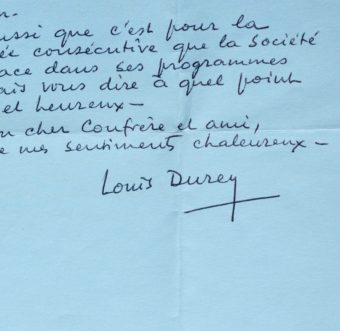 n.
ussi que c'est pour la
ée consécutive que la Société
ace dans ses programmes
ais vous dire à quel point
et heureux —
n cher Confrère et ami,
e mes sentiments chaleureux —
Louis Durey